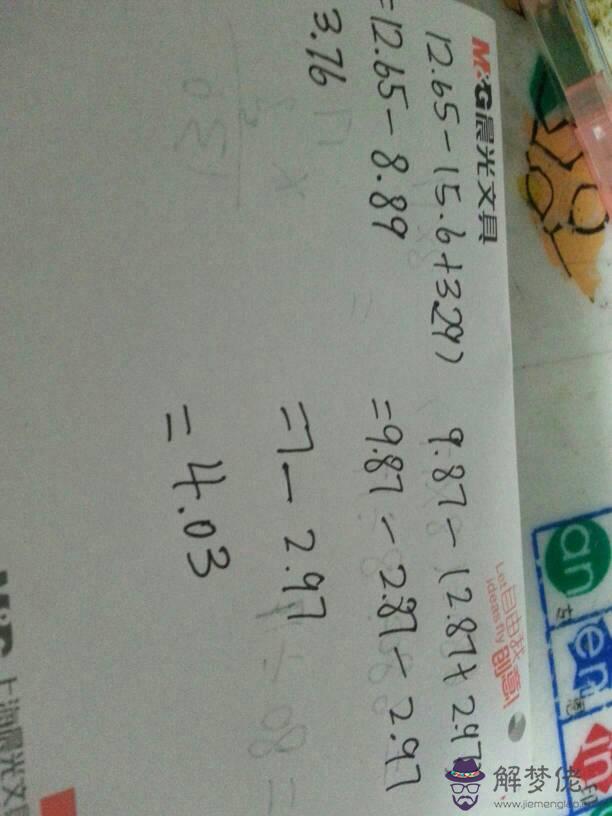 M&G晨光文具
12.65-(5.6+3.29)
=12.65-8.89
3.76
9.87-(2.87+2.97
=9.87-2.87-2.97
=7-2.97
=4.03
Let
ideas fly
自由我
创意!
an
en
in
÷08=
上海晨光文具
解梦佬
www.jiemenglao.com